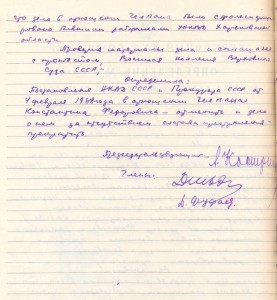 что дело в отношении Чепкана было сфальсифи-
цировано бывшими работниками НКВД Харьковской
области.
Проверив материалы дела и соглашаясь
с протестом, Военная коллегия Верховного
Суда СССР,
определила:
Постановление НКВД СССР и Прокурора СССР от
4 февраля 1938 года в отношении
Константина Федоровича – отменить и дело
о нем за отсутствием состава преступления –
прекратить.
Председательствующий –
Члены: